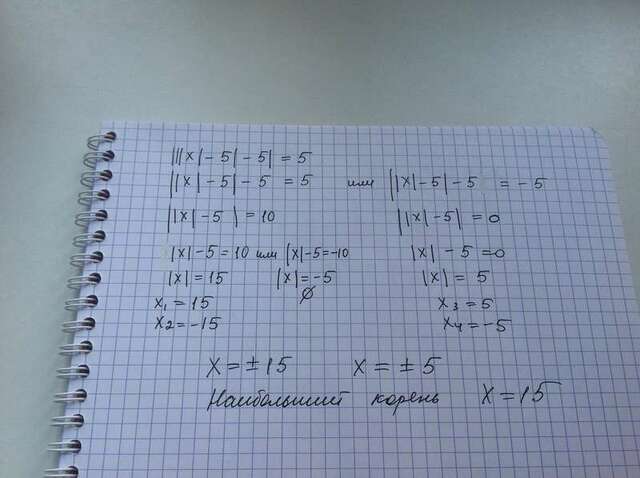 |||x|-5|-5| = 5
||x|-5|-5 = 5 или ||x|-5|-5 = -5
||x|-5| = 10 ||x|-5| = 0
|x|-5 = 10 или |x|-5=-10 |x|-5=0
|x| = 15 |x|=-5 |x| = 5
∅
x₁ = 15 x₃ = 5
x₂=-15 x₄=-5
x=±15 x=±5
Наибольший корень x=15